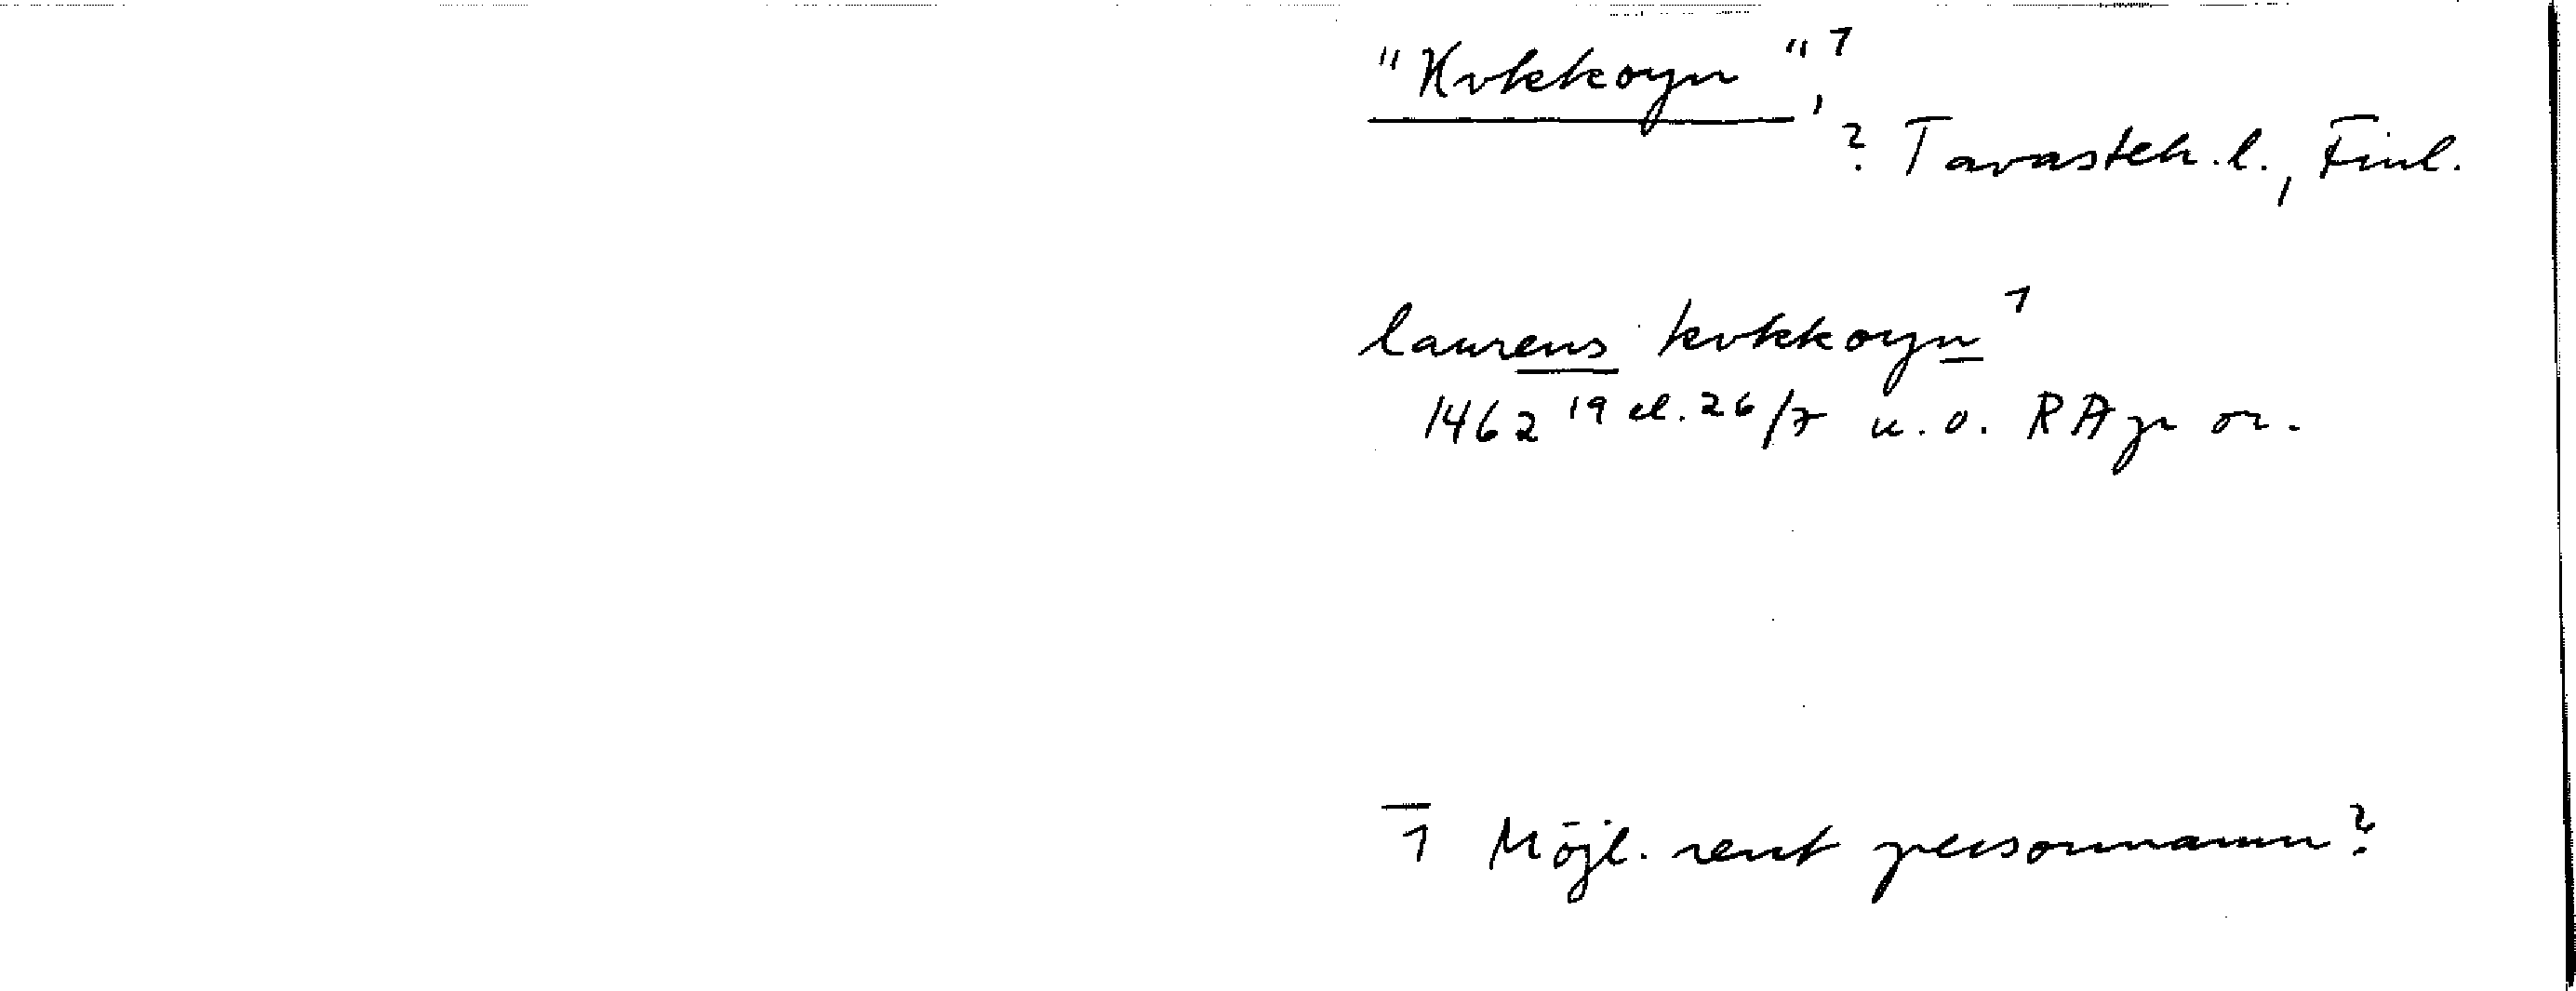 "Kvkkoyn",¹
? Tavasteh.l., Finl.
laurens kvkkoyn¹
1462 19 el. 26/7 u.o. RAp or.
1 Möjl. rent personnamn?